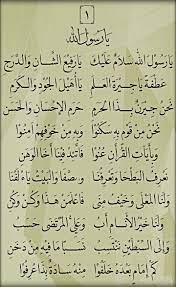 ١
يَارَسُولَ اللّٰه
يَارَسُولَ اللّٰهِ سَلَامٌ عَلَيْكَ يَارَفِيعَ الشَّانِ وَالدَّرَجِ
عَطْفَةً يَاجِيرَةَ الْعَلَمِ يَاأُهَيْلَ الْجُودِ وَالْكَرَمِ
نَحْنُ جِيرَانٌ بِذَا الْحَرَمِ حَرَمِ الْإِحْسَانِ وَالْحَسَنِ
نَحْنُ مِنْ قَوْمٍ بِهِ سَكَنُوا وَبِهِ مِنْ خَوْفِهِمْ أَمِنُوا
وَبِآيَاتِ الْقُرْآنِ عُنُوا فَاتَّئِدْ فِينَا أَخَا الْوَهَنِ
نَعْرِفُ الْبَطْحَا وَتَعْرِفُنَا وَالصَّفَا وَالْبَيْتُ يَأْلَفُنَا
وَلَنَا الْمَعْلَى وَخَيْفُ مِنًى فَاعْلَمَنْ هٰذَا وَكُنْ وَكُنِ
وَلَنَا خَيْرُ الْأَنَامِ أَبُ وَعَلِيُّ الْمُرْتَضَى حَسَبُ
وَإِلَى السِّبْطَيْنِ نَنْتَسِبُ نَسَبًا مَا فِيهِ مِنْ دَخَنِ
كَمْ إِمَامٍ بَعْدَهُ خَلَفُوا مِنْهُ سَادَةٌ بِذَا عُرِفُوا